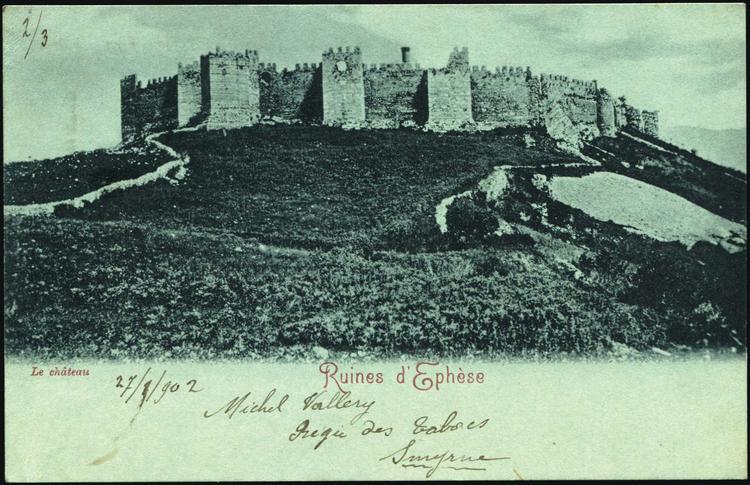 2/3
Le château
Ruines d'Ephèse
27/8/902
Michel Vallery
Regie des Tabacs
Smyrne